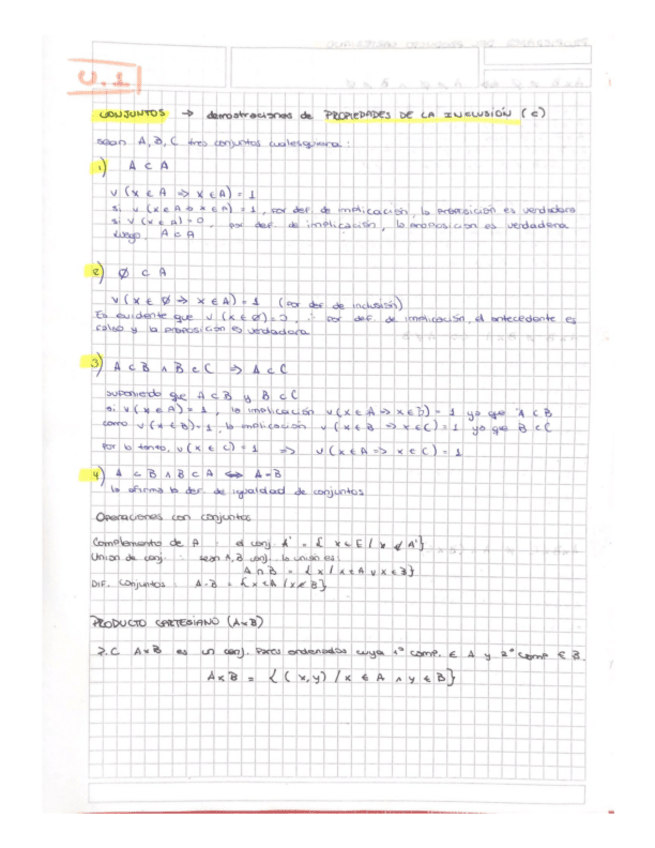 U.1
CONJUNTOS → demostraciones de PROPIEDADES DE LA INCLUSIÓN (⊂)
sean A, B, C tres conjuntos cualesquiera:
1) A ⊂ A
v (x ∈ A ⇒ x ∈ A) = 1
si v (x ∈ A ⇒ x ∈ A) = 1, por def. de implicación, la proposición es verdadera
si v (x ∈ A) = 0, por def. de implicación, la proposicion es verdadera
Luego, A ⊂ A
2) ∅ ⊂ A
v (x ∈ ∅ ⇒ x ∈ A) = 1 (por def de inclusión)
Es evidente que v (x ∈ ∅) = 0, ∴ por def. de implicación, el antecedente es
falso y la proposición es verdadera
3) A ⊂ B ∧ B ⊂ C ⇒ A ⊂ C
suponiendo que A ⊂ B y B ⊂ C
si v (x ∈ A) = 1, la implicación v (x ∈ A ⇒ x ∈ B) = 1 ya que A ⊂ B
como v (x ∈ B) = 1, la implicación v (x ∈ B ⇒ x ∈ C) = 1 ya que B ⊂ C
Por lo tanto, v (x ∈ C) = 1 ⇒ v (x ∈ A ⇒ x ∈ C) = 1
4) A ⊂ B ∧ B ⊂ A ⇔ A = B
lo afirma la def. de igualdad de conjuntos
Operaciones con conjuntos
Complemento de A : el conj. A' = { x ∈ E / x ∉ A'}
Union de conj. : sean A, B conj. la union es:
A ∩ B = { x / x ∈ A ∨ x ∈ B}
DIF. Conjuntos : A - B = { x ∈ A / x ∉ B}
PRODUCTO CARTESIANO (A×B)
P.C A×B es un conj. Pares ordenados cuya 1° comp. ∈ A y 2° comp ∈ B.
A×B = { (x, y) / x ∈ A ∧ y ∈ B}